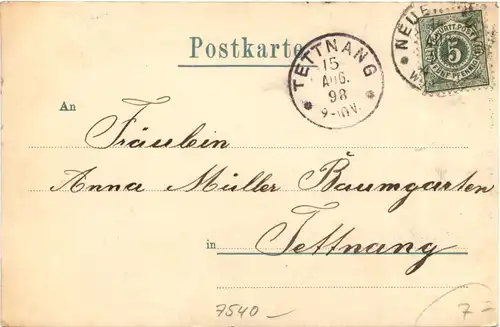 Postkarte
TETTNANG
15
AUG.
98
9-10V.
NEUE
WÜRTT.POST
5
FÜNF PFENNIG
An
Fräulein
Anna Müller Baumgarten
in
Tettnang
7540 —
7=